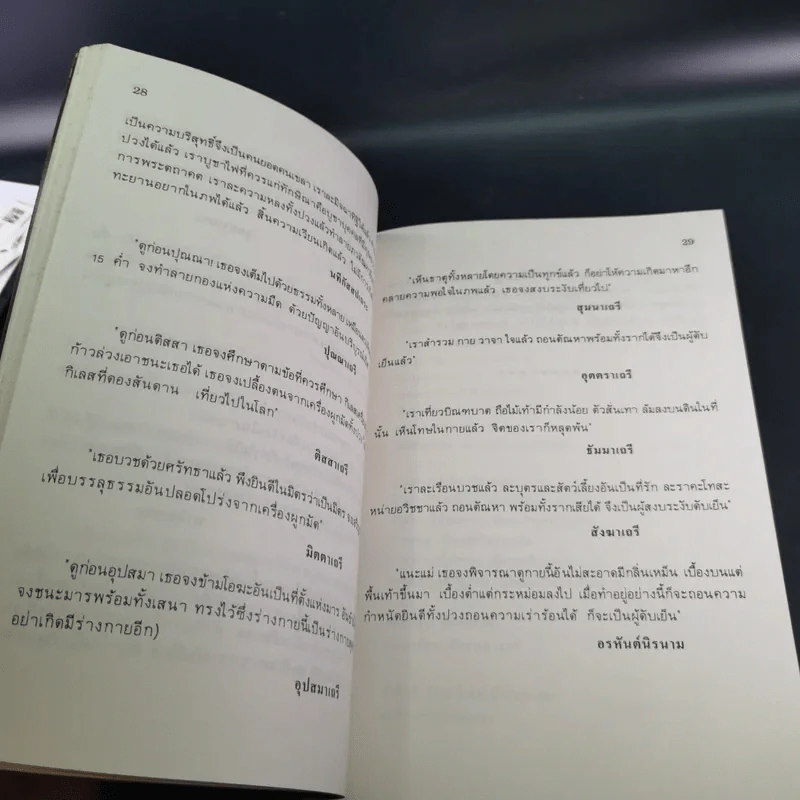 28
เป็นความบริสุทธิ์จึงเป็นคนยอดคนเขลา เราละมิจฉาทิฏฐิได้แล้ว
ปวงได้แล้ว เราบูชาไฟที่ควรแก่ทักษิณาคือบูชาบุคคลที่
การพระตถาคต เราละความหลงทั้งปวงแล้วทำลาย
ทะยานอยากในภพได้แล้ว สิ้นความเวียนเกิดแล้ว ไม่มี
นทีกัสสปเถระ
"ดูก่อนปุณณา! เธอจงเต็มไปด้วยธรรมทั้งหลายเหมือน
15 ค่ำ จงทำลายกองแห่งความมืด ด้วยปัญญาอันบริบูรณ์
ปุณณาเถรี
"ดูก่อนติสสา เธอจงศึกษาตามข้อที่ควรศึกษา กิเลสเครื่อง
ก้าวล่วงเอาชนะเธอได้ เธอจงเปลื้องตนจากเครื่องผูกมัดทั้งปวง
กิเลสที่ดองสันดาน เที่ยวไปในโลก"
ติสสาเถรี
"เธอบวชด้วยศรัทธาแล้ว พึงยินดีในมิตรว่าเป็นมิตร
เพื่อบรรลุธรรมอันปลอดโปร่งจากเครื่องผูกมัด"
มิตตาเถรี
"ดูก่อนอุปสมา เธอจงข้ามโอฆะอันเป็นที่ตั้งแห่งมาร
จงชนะมารพร้อมทั้งเสนา ทรงไว้ซึ่งร่างกายนี้เป็นร่างกาย
อย่าเกิดมีร่างกายอีก)
อุปสมาเถรี
29
"เห็นธาตุทั้งหลายโดยความเป็นทุกข์แล้ว ก็อย่าให้ความเกิดมาหาอีก
คลายความพอใจในภพแล้ว เธอจงสงบระงับเที่ยวไป"
สุมนาเถรี
"เราสำรวม กาย วาจา ใจแล้ว ถอนตัณหาพร้อมทั้งรากได้จึงเป็นผู้ดับ
เย็นแล้ว"
อุตตราเถรี
"เราเที่ยวบิณฑบาต ถือไม้เท้ามีกำลังน้อย ตัวสั่นเทา ล้มลงบนดินในที่
นั้น เห็นโทษในกายแล้ว จิตของเราก็หลุดพ้น"
ธัมมาเถรี
"เราละเรือนบวชแล้ว ละบุตรและสัตว์เลี้ยงอันเป็นที่รัก ละราคะโทสะ
หน่ายอวิชชาแล้ว ถอนตัณหา พร้อมทั้งรากเสียได้ จึงเป็นผู้สงบระงับดับเย็น"
สังฆาเถรี
"แนะแม่ เธอจงพิจารณาดูกายนี้อันไม่สะอาดมีกลิ่นเหม็น เบื้องบนแต่
พื้นเท้าขึ้นมา เบื้องต่ำแต่กระหม่อมลงไป เมื่อทำอยู่อย่างนี้ก็จะถอนความ
กำหนัดยินดีทั้งปวงถอนความเร่าร้อนได้ ก็จะเป็นผู้ดับเย็น"
อรหันต์นิรนาม